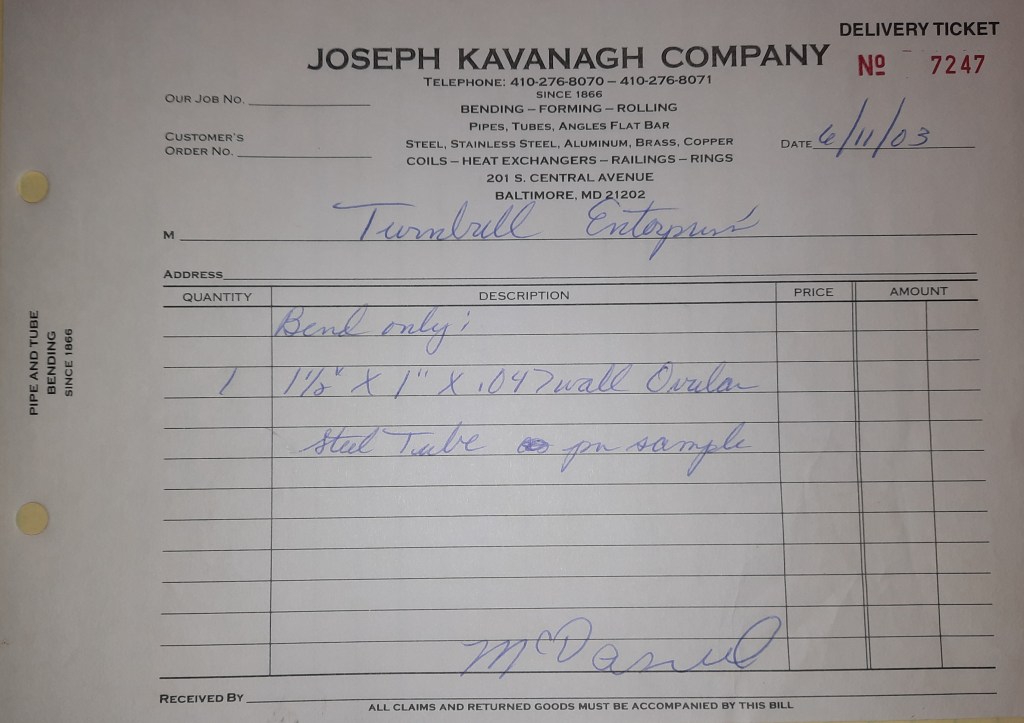 DELIVERY TICKET
JOSEPH KAVANAGH COMPANY
Nº 7247
TELEPHONE: 410-276-8070 – 410-276-8071
SINCE 1866
OUR JOB NO.
BENDING – FORMING – ROLLING
PIPES, TUBES, ANGLES FLAT BAR
CUSTOMER'S
ORDER NO.
STEEL, STAINLESS STEEL, ALUMINUM, BRASS, COPPER
DATE 6/11/03
COILS – HEAT EXCHANGERS – RAILINGS – RINGS
201 S. CENTRAL AVENUE
BALTIMORE, MD 21202
M Turnbull Enterprises
ADDRESS
QUANTITY DESCRIPTION PRICE AMOUNT
Bend only:
1 1 1/2" X 1" X .047 wall Ovular
Steel Tube per sample
McDaniel
RECEIVED BY
ALL CLAIMS AND RETURNED GOODS MUST BE ACCOMPANIED BY THIS BILL
PIPE AND TUBE
BENDING
SINCE 1866